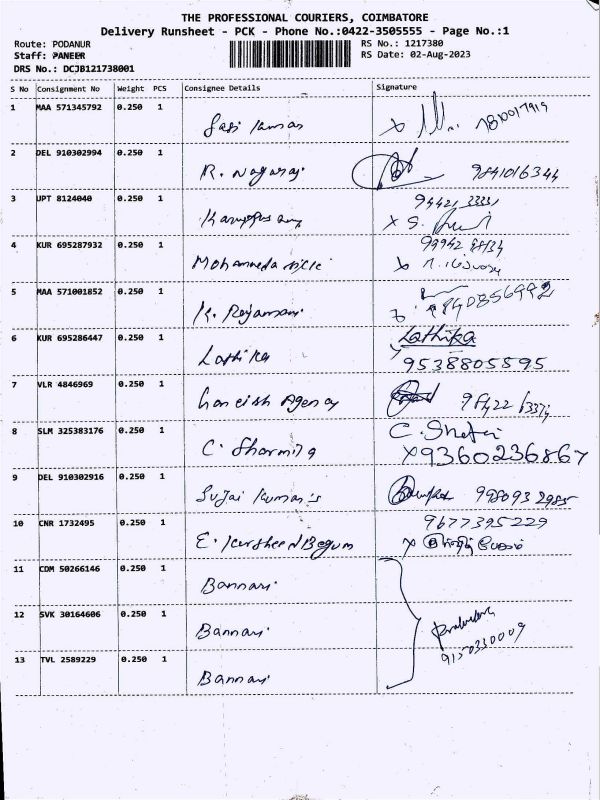 THE PROFESSIONAL COURIERS, COIMBATORE
Delivery Runsheet - PCK - Phone No.:0422-3505555 - Page No.:1
Route: PODANUR RS No.: 1217380
Staff: PANEER RS Date: 02-Aug-2023
DRS No.: DCJB121738001
S No Consignment No Weight PCS Consignee Details Signature
1 MAA 571345792 0.250 1 Sasi Kumar
2 DEL 910302994 0.250 1 R. Nagaraj 9841016344
3 UPT 8124040 0.250 1
4 KUR 695287932 0.250 1
5 MAA 571001852 0.250 1 K. Rajamani
6 KUR 695286447 0.250 1 Lathika Lathika
9538805595
7 VLR 4846969 0.250 1 Agency
8 SLM 325383176 0.250 1 C. Sharmila
X9360236867
9 DEL 910302916 0.250 1 Sujai Kumar's
10 CNR 1732495 0.250 1 E. Kursheed Begum 9677395229
11 CDM 50266146 0.250 1 Bannari
12 SVK 30164606 0.250 1 Bannari
9150330009
13 TVL 2589229 0.250 1 Bannari